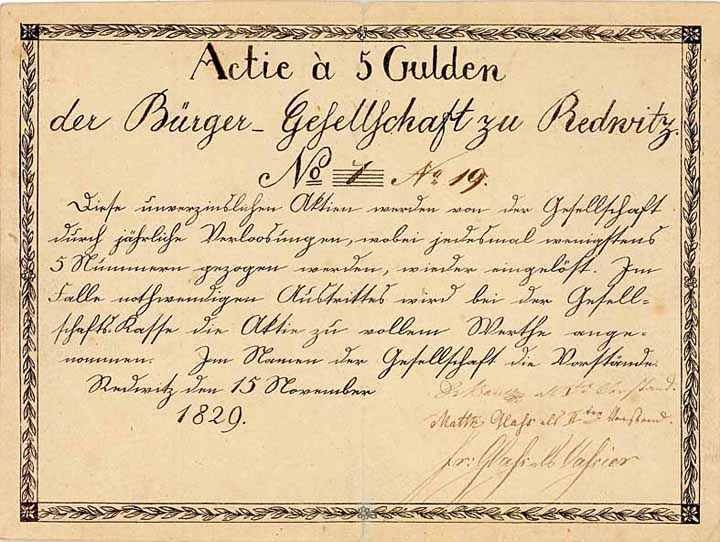 Actie à 5 Gulden
der Bürger-Gesellschaft zu Redwitz.
No 1 No 19.
Diese unverzinslichen Aktien werden von der Gesellschaft
durch jährliche Verloosungen, wobei jedesmal wenigstens
5 Nummern gezogen werden, wieder eingelöst. Im
Falle nothwendigen Austrittes wird bei der Gesell-
schafts-Kasse die Aktie zu vollem Werthe ange-
nommen. Im Namen der Gesellschaft die Vorstände.
Redwitz den 15 November
1829.
als Iter Vorstand.
Matth Glass als IIter Vorstand.
Fr: Glass als Cassier